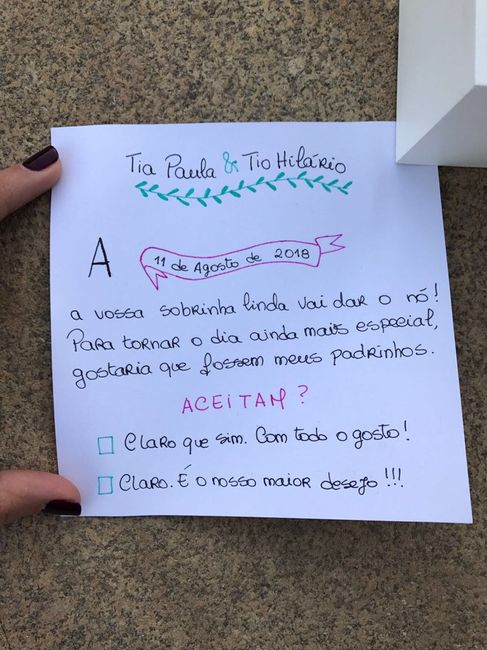 Tia Paula & Tio Hilário
A 11 de Agosto de 2018
a vossa sobrinha linda vai dar o nó!
Para tornar o dia ainda mais especial,
gostaria que fossem meus padrinhos.
ACEITAM?
Claro que sim. Com todo o gosto!
Claro. É o nosso maior desejo!!!